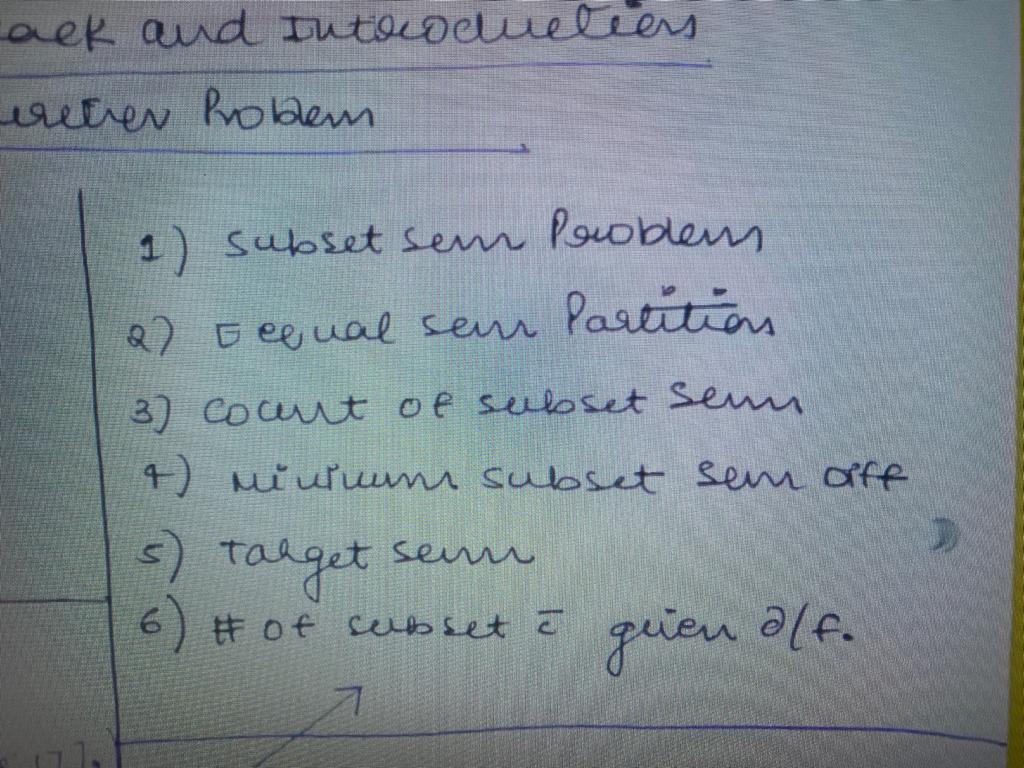 and Introduction
Problem
1) Subset sum Problem
2) Eequal sum Partition
3) Count of subset sum
4) Minimum subset sum diff
5) Target sum
6) # of subset c̄ given d/f.